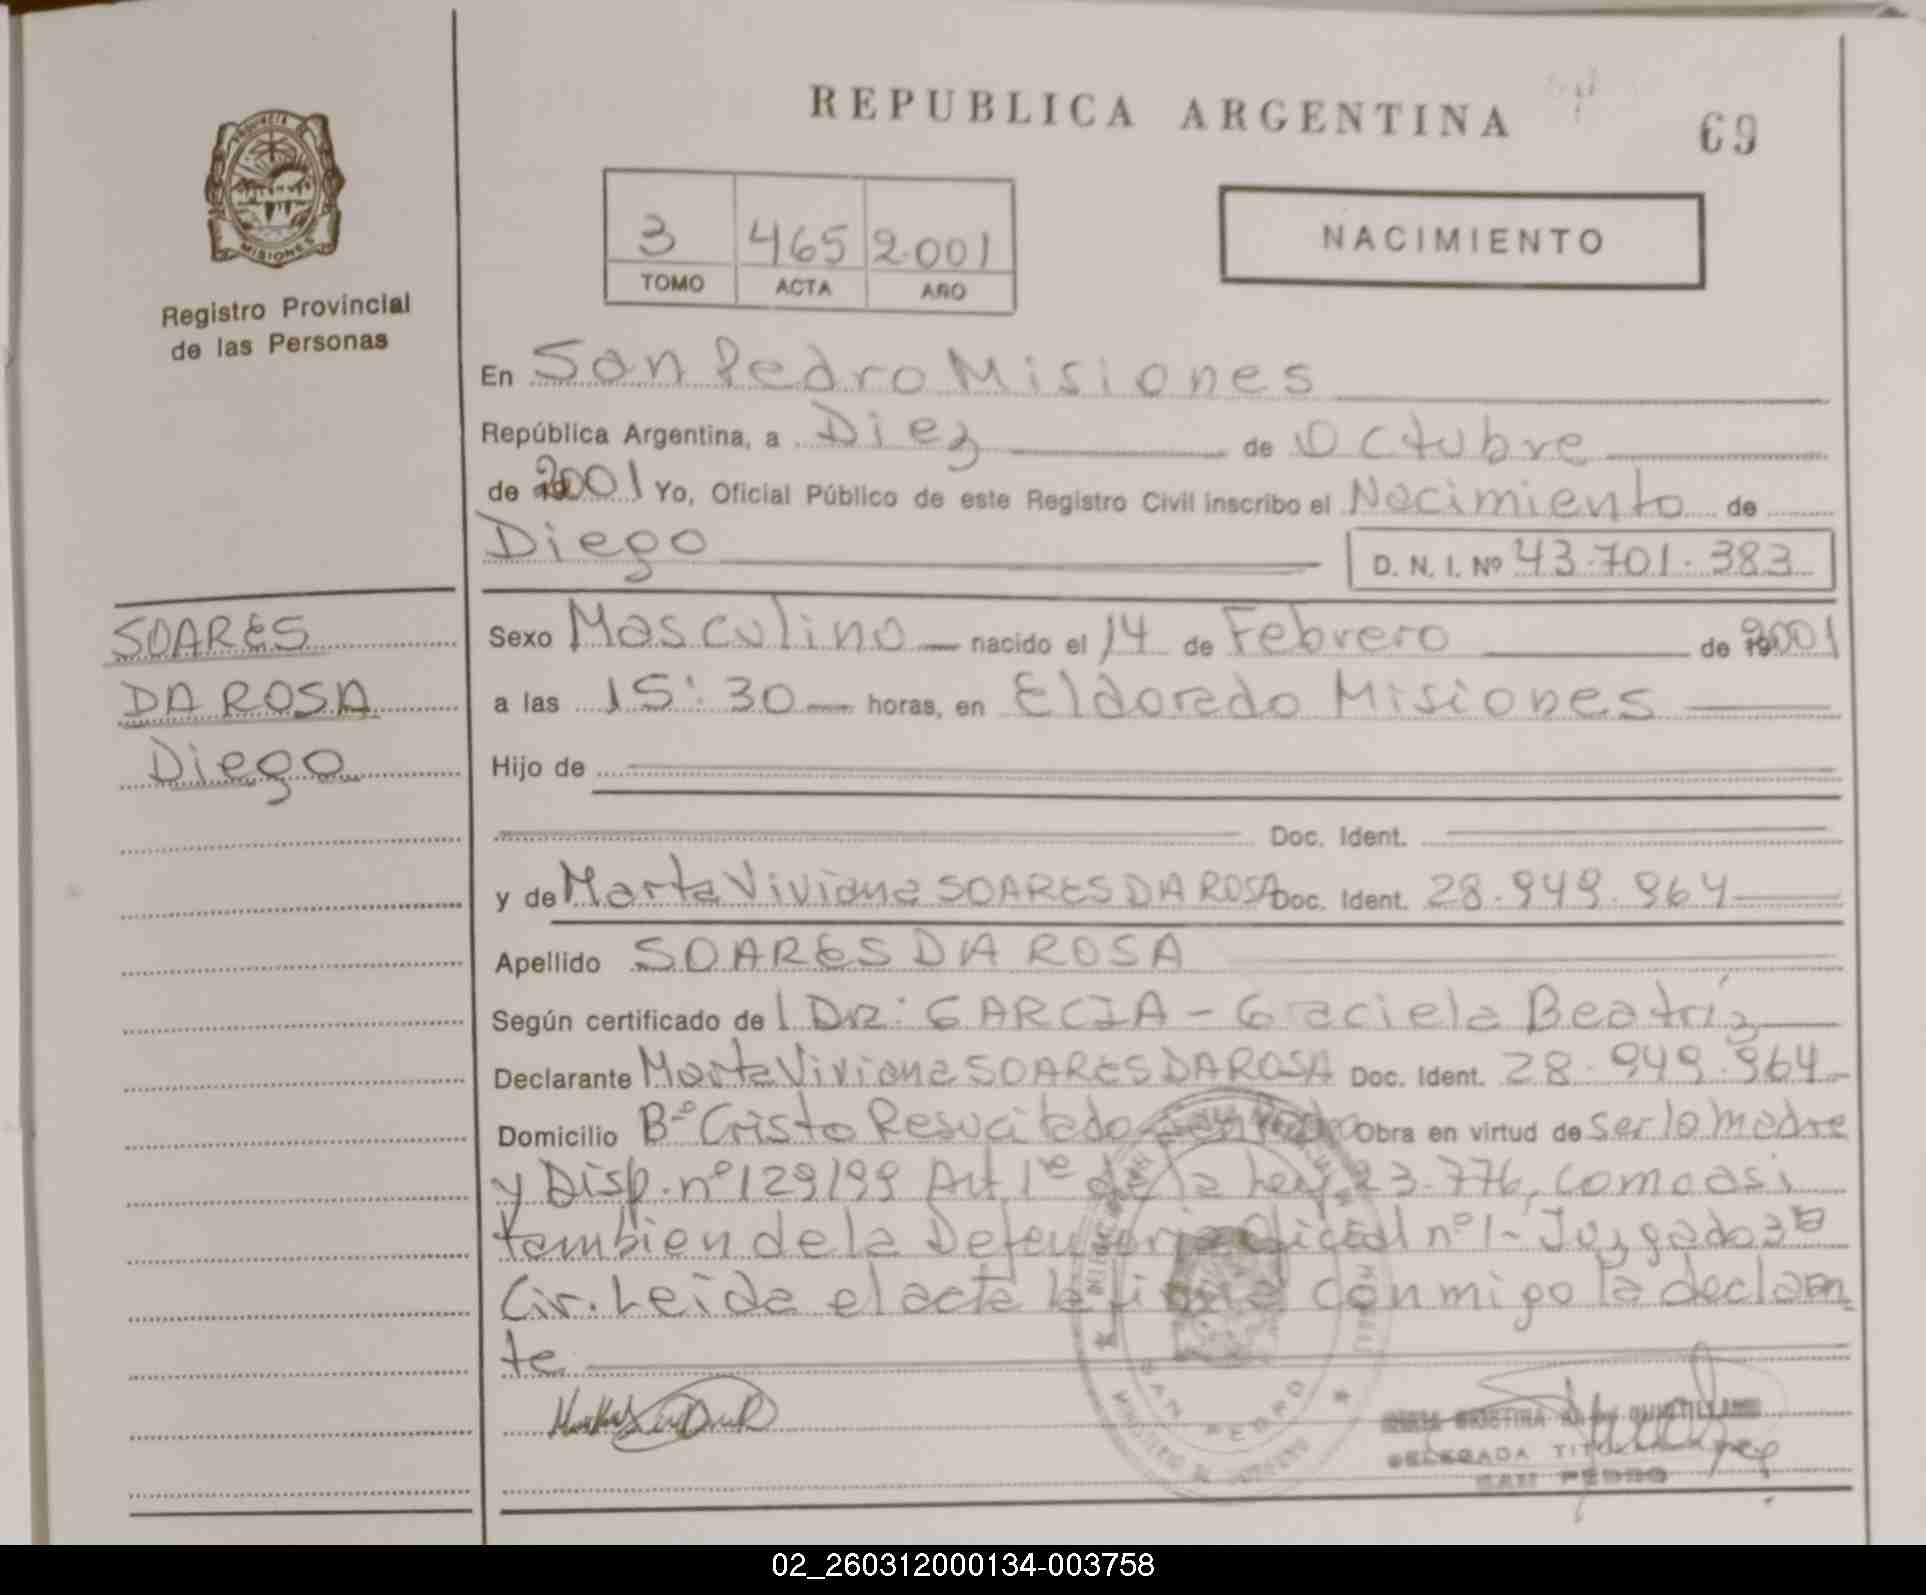 REPUBLICA ARGENTINA
69
PROVINCIA DE
MISIONES
Registro Provincial
de las Personas
3 465 2.001
TOMO ACTA AÑO
NACIMIENTO
En San Pedro Misiones
República Argentina, a Diez de Octubre
de 2001 Yo, Oficial Público de este Registro Civil inscribo el Nacimiento de
Diego D. N. I. Nº 43.701.383
SOARES
DA ROSA
Diego
Sexo Masculino nacido el 14 de Febrero de 2001
a las 15:30 horas, en Eldorado Misiones
Hijo de
Doc. Ident.
y de Marta Viviana SOARES DA ROSA Doc. Ident. 28.949.964
Apellido SOARES DA ROSA
Según certificado de l Dr: GARCIA - Graciela Beatríz
Declarante Marta Viviana SOARES DA ROSA Doc. Ident. 28.949.964
Domicilio Bº Cristo Resucitado San Pedro Obra en virtud de ser la madre
y Disp. nº 129/99 Art. 1º de la Ley 23.776, como asi
tambien de la Defensoria Oficial nº 1- Juzgado 3ª
Cir. Leida el acta la firma conmigo la declaran
te.
SAN PEDRO
DELEGADA TITULAR
SAN PEDRO
02_260312000134-003758